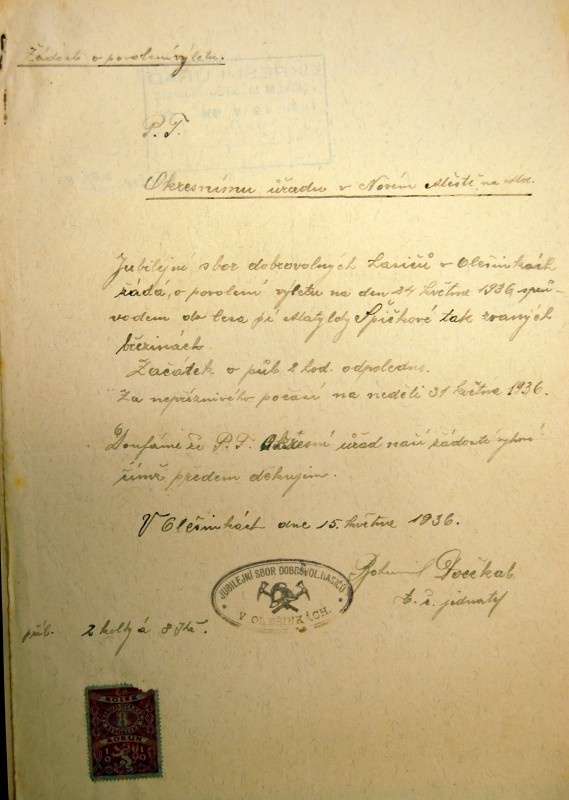 Žádost o povolení výletu.
P. T.
Okresnímu úřadu v Novém Městě na Mor.
Jubilejní sbor dobrovolných hasičů v Olešinkách
žádá, o povolení výletu na den 24 května 1936, sprů-
vodem do lesa pí Matyldy Špičkové tak zvaných
březinách
Začátek o půl 2 hod. odpoledne.
Za nepříznivého počasí na neděli 31 května 1936.
Doufáme že P. T. Okresní úřad naší žádosti vyhoví
čímž předem děkujem.
V Olešinkách dne 15. května 1936.
Bohumil
t. č. jednatel
JUBILEJNÍ SBOR DOBROVOL. HASIČŮ
V OLEŠINKÁCH.
příl. 2 kolky á 8 Kč.
KOLEK
8
KORUN